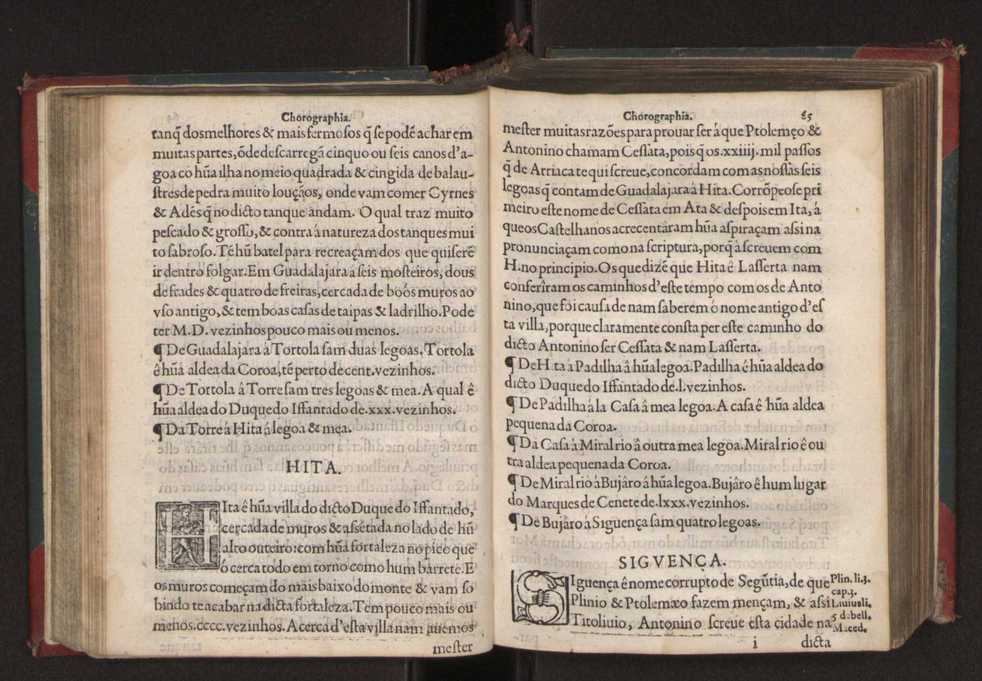 Chorographia.
tanq̃ dos melhores & mais fermosos q̃ se podẽ achar em
muitas partes, õde descarregã cinquo ou seis canos d'a-
goa co hũa ilha no meio quadrada & cingida de balau-
stres de pedra muito louçãos, onde vam comer Cyrnes
& Adẽs q̃ no dicto tanque andam. O qual traz muito
pescado & grosso, & contra á natureza dos tanques mui
to sabroso. Tẽ hũ batel para recreaçam dos que quiserẽ
ir dentro folgar. Em Guadalajara á seis mosteiros, dous
de frades & quatro de freiras, cercada de boõs muros ao
vso antigo, & tem boas casas de taipas & ladrilho. Pode
ter M.D. vezinhos pouco mais ou menos.
¶ De Guadalajara á Tortola sam duas legoas. Tortola
ê hũa aldea da Coroa, tẽ perto de cent. vezinhos.
¶ De Tortola â Torre sam tres legoas & mea. A qual ê
hũa aldea do Duque do Iffantado de .xxx. vezinhos.
¶ Da Torre à Hita á legoa & mea.
HITA.
HIta ê hũa villa do dicto Duque do Iffantado,
cercada de muros & assẽtada no lado de hũ
alto outeiro: com hũa fortaleza no pico que
ó cerca todo em torno como hum barrete. E
os muros começam do mais baixo do monte & vam so
bindo te acabar na dicta fortaleza. Tem pouco mais ou
menos. cccc. vezinhos. Acerca d'esta villa nam auemos
mester
Chorographia. 65
mester muitas razões para prouar ser á que Ptolemęo &
Antonino chamam Cessata, pois q̃ os. xxiiij. mil passos
q̃ de Arriaca te qui screue, concordam com as nossas seis
legoas q̃ contam de Guadalajara á Hita. Corrõpeose pri
meiro este nome de Cessata em Ata & despois em Ita, á
que os Castelhanos acrecentáram hũa aspiraçam assi na
pronunciaçam como na scriptura, porq̃ á screuem com
H. no principio. Os que dizẽ que Hita ê Lasserta nam
conferîram os caminhos d'este tempo com os de Anto
nino, que foi causa de nam saberem ó nome antigo d'es
ta villa, porque claramente consta per este caminho do
dicto Antonino ser Cessata & nam Lasserta.
¶ De Hita à Padilha â hũa legoa. Padilha ê hũa aldea do
dicto Duque do Iffantado de .l. vezinhos.
¶ De Padilha á la Casa â mea legoa. A casa ê hũa aldea
pequena da Coroa.
¶ Da Casa à Miralrio â outra mea legoa. Miralrio ê ou
tra aldea pequena da Coroa.
¶ De Miralrio à Bujâro â hũa legoa. Bujâro ê hum lugar
do Marques de Cenete de .lxxx. vezinhos.
¶ De Bujâro à Siguença sam quatro legoas.
SIGVENÇA.
SIguença ê nome corrupto de Segũtia, de que
Plinio & Ptolemæo fazem mençam, & assi
Titoliuio, Antonino screue esta cidade na
Plin. li.3.
cap.3.
Liuius li.
5 d. bell.
Maced.
i dicta